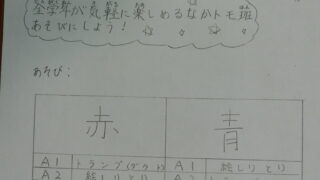 全学年が気軽に楽しめるなかトモ班
あそびにしよう！
あそび：
赤 青
A1 トランプ(ダウト) A1 絵しりとり
A2 絵しりとり A2